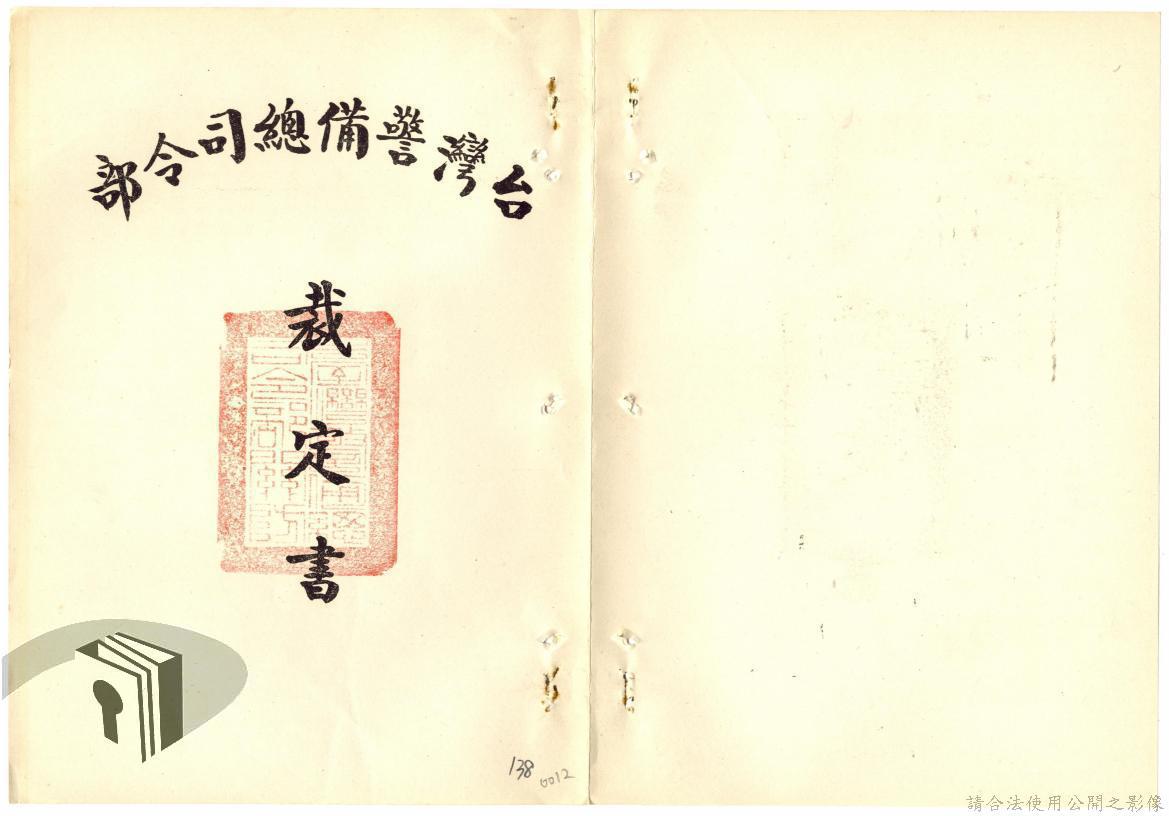 台灣警備總司令部
裁定書
138
0012
請合法使用公開之影像